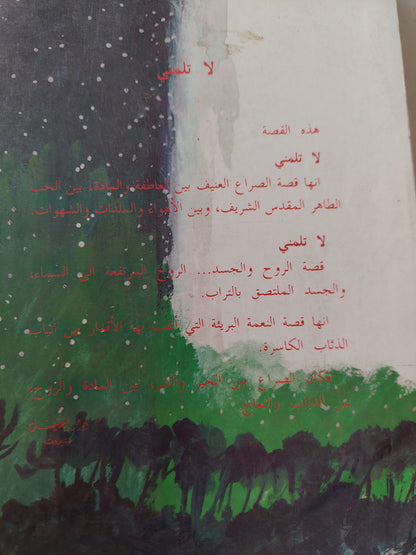 لا تلمني
هذه القصة
لا تلمني
انها قصة الصراع العنيف بين العاطفة والمادة، بين الحب
الطاهر المقدس الشريف، وبين الأهواء والملذات والشهوات.
لا تلمني
قصة الروح والجسد... الروح المرتفعة الى السماء،
والجسد الملتصق بالتراب.
انها قصة النعمة البريئة التي ألقت بها الأقدار بين أنياب
الذئاب الكاسرة.
فكان الصراع بين الخير والشر، بين المادة والروح،
بين الذئاب والنعاج.